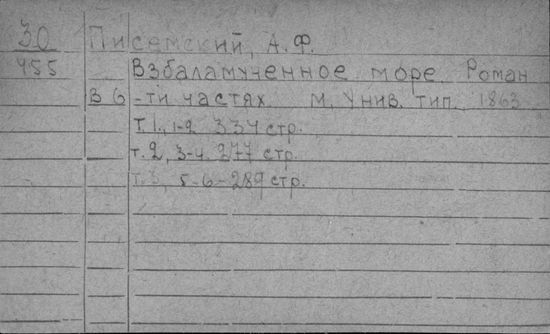 30 Писемский, А.Ф.
455 Взбаламученное море Роман
в 6 -ти частях М. Унив. тип. 1863
Т 1., 1-2 334 стр.
т. 2, 3-4 277 стр.
т. 3, 5-6-289 стр.